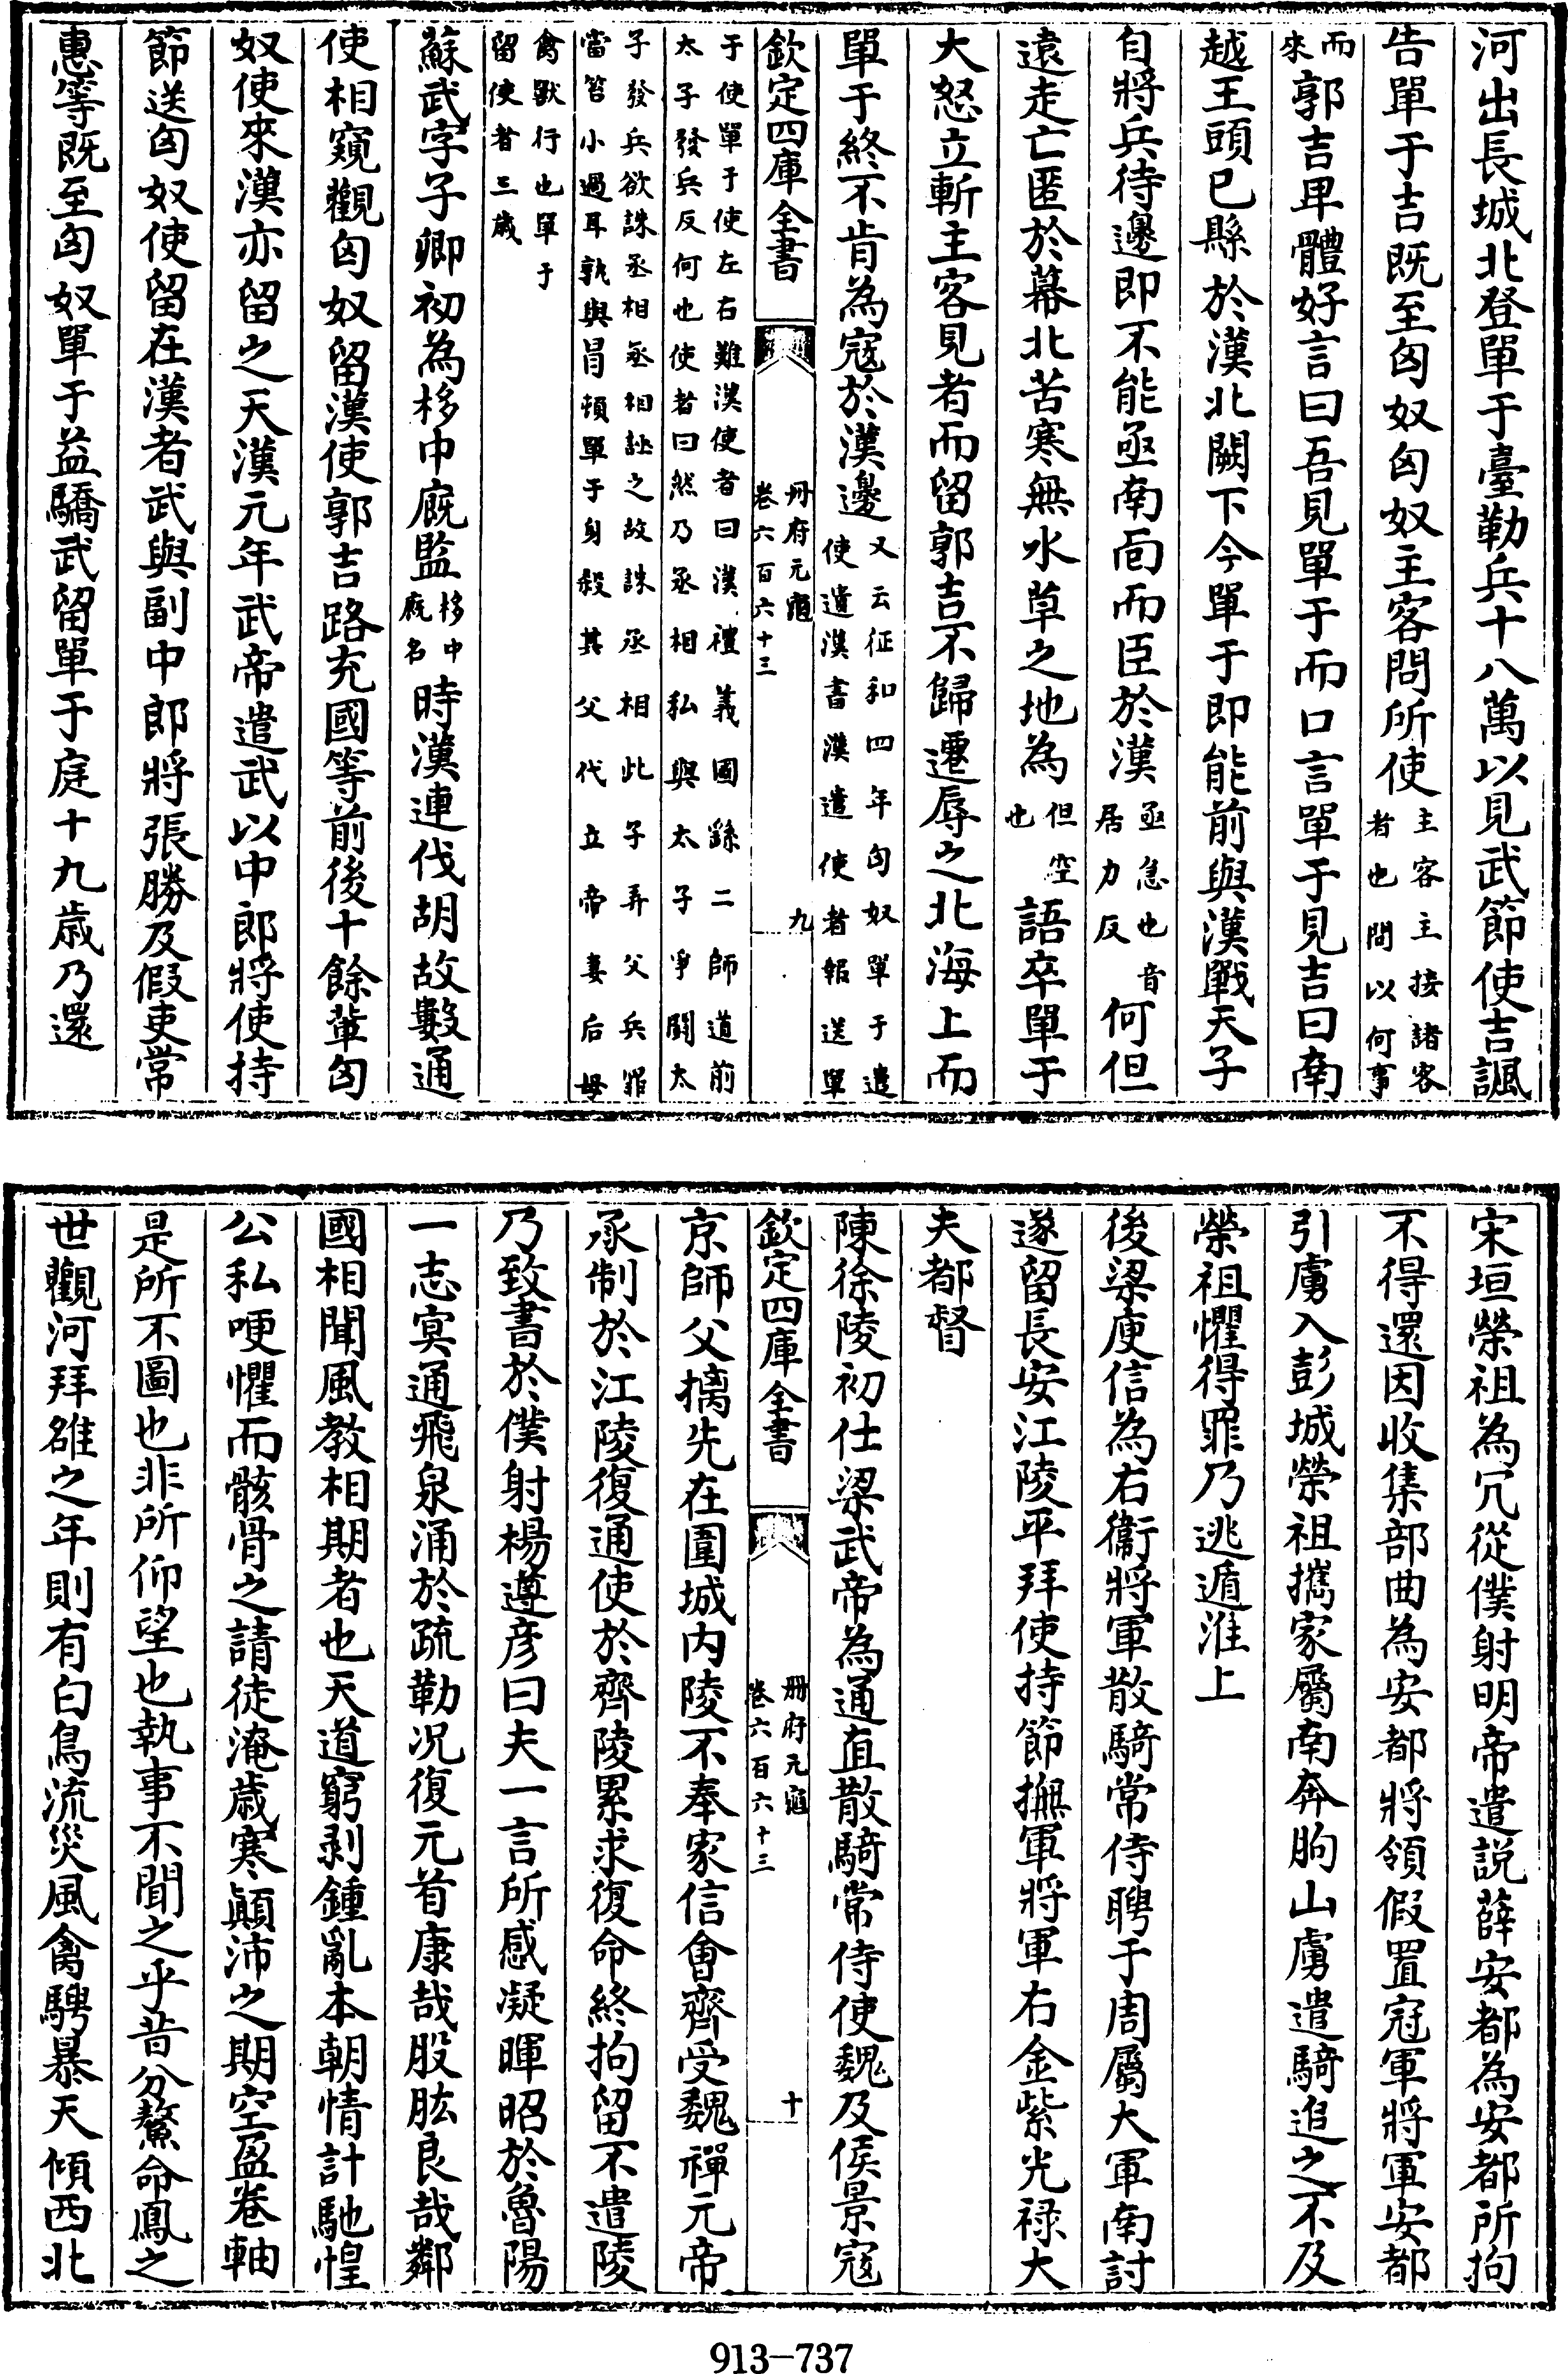 河出長城北登單于臺勒兵十八萬以見武節使吉諷
告單于吉既至匈奴匈奴主客問所使主客主接諸客者也問以何事
而來郭吉卑體好言曰吾見單于而口言單于見吉曰南
越王頭已縣於漢北闕下今單于即能前與漢戰天子
自將兵待邊即不能亟南面而臣於漢亟急也音居力反何但
遠走亡匿於幕北苦寒無水草之地為但空也語卒單于
大怒立斬主客見者而留郭吉不歸遷辱之北海上而
單于終不肯為寇於漢邊又云征和四年匈奴單于遣使遺漢書漢遣使者報送單
欽定四庫全書 冊府元龜 卷六百六十三 九
于使單于使左右難漢使者曰漢禮義國繇二師道前太子發兵反何也使者曰然乃丞相私與太子爭鬬太
子發兵欲誅丞相丞相誣之故誅丞相此子弄父兵罪當笞小過耳孰與冒頓單于身殺其父代立帝妻后母
禽獸行也單于留使者三歲
蘇武字子卿初為栘中廐監栘中廐名時漢連伐胡故數通
使相窺觀匈奴留漢使郭吉路充國等前後十餘輩匈
奴使來漢亦留之天漢元年武帝遣武以中郎將使持
節送匈奴使留在漢者武與副中郎將張勝及假吏常
惠等既至匈奴單于益驕武留單于庭十九歲乃還
宋垣榮祖為冗從僕射明帝遣説薛安都為安都所拘
不得還因收集部曲為安都將領假置冠軍將軍安都
引虜入彭城榮祖攜家屬南奔朐山虜遣騎追之不及
榮祖懼得罪乃逃遁淮上
後梁庾信為右衞將軍散騎常侍聘于周屬大軍南討
遂留長安江陵平拜使持節撫軍將軍右金紫光祿大
夫都督
陳徐陵初仕梁武帝為通直散騎常侍使魏及侯景寇
欽定四庫全書 冊府元龜 卷六百六十三 十
京師父摛先在圍城内陵不奉家信會齊受魏禪元帝
承制於江陵復通使於齊陵累求復命終拘留不遣陵
乃致書於僕射楊遵彦曰夫一言所感凝暉昭於魯陽
一志冥通飛泉涌於疏勒况復元首康哉股肱良哉鄰
國相聞風教相期者也天道窮剥鍾亂本朝情計馳惶
公私哽懼而骸骨之請徒淹歲寒顛沛之期空盈卷軸
是所不圖也非所仰望也執事不聞之乎昔分鼇命鳳之
世觀河拜雒之年則有白鳥流災風禽騁暴天傾西北
913-737